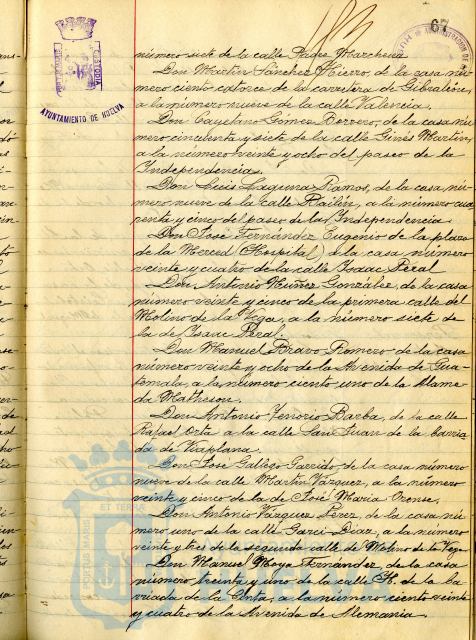 67
AYUNTAMIENTO DE HUELVA
número siete de la calle Padre Marchena
Don Martín Sánchez Hierro, de la casa nú-
mero ciento catorce de la carretera de Gibraleón,
a la número nueve de la calle Valencia.
Don Cayetano Gómez Berrero, de la casa nú-
mero cincuenta y siete de la calle Ginés Martín,
a la número veinte y ocho del paseo de la
Independencia.
Don Luis Laguna Ramos, de la casa nú-
mero nueve de la calle Bailén, a la número cua-
renta y cinco del paseo de la Independencia
Don José Fernández Eugenio de la plaza
de la Merced (Hospital) de la casa número
veinte y cuatro de la calle Isaac Peral
Don Antonio Núñez González, de la casa
número veinte y cinco de la primera calle del
Molino de la Vega, a la número siete de
la de Isaac Peral.
Don Manuel Bravo Romero de la casa
número veinte y ocho de la Avenida de Gua-
temala, a la número ciento uno de la Alame
da Matheson.
Don Antonio Tenorio Barba, de la calle
Rafael Orta a la calle San Juan de la barria
da de Viaplana.
Don José Gallego Garrido, de la casa número
nueve de la calle Martín Vázquez, a la número
veinte y cinco de la de José María Orense.
Don Antonio Vázquez Pérez de la casa nú-
mero uno de la calle Garci Díaz, a la número
veinte y tres de la segunda calle de Molino de la Vega
Don Manuel Moya Fernández, de la casa
número treinta y uno de la calle H. de la ba-
rriada de la Cinta, a la número ciento veinte
y cuatro de la Avenida de Alemania.
ET TERRA
PORTUS